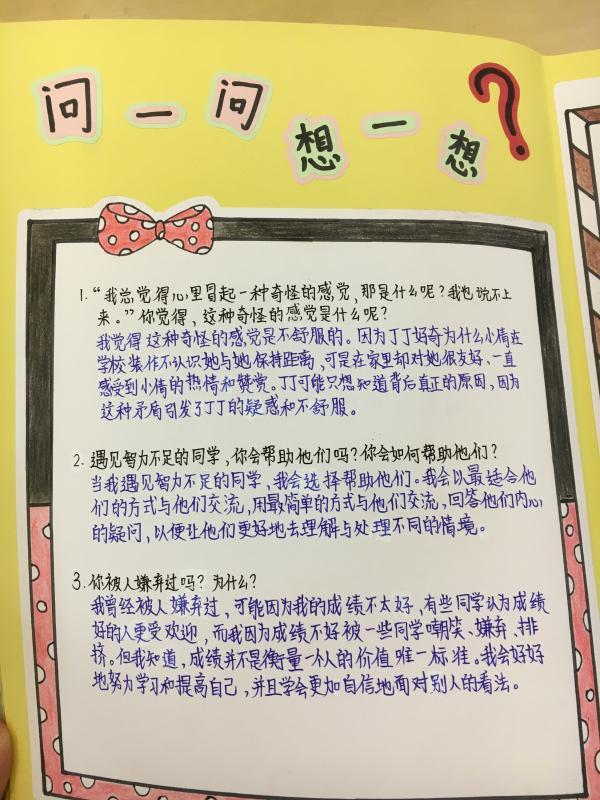 问一问
想一想?
1. “我总觉得心里冒起一种奇怪的感觉,那是什么呢?我也说不上
来。”你觉得,这种奇怪的感觉是什么呢?
我觉得这种奇怪的感觉是不舒服的。因为丁丁好奇为什么小倩在
学校装作不认识她与她保持距离,可是在家里却对她很友好、一直
感受到小倩的热情和赞赏。丁丁可能只想知道背后真正的原因,因为
这种矛盾引发了丁丁的疑惑和不舒服。
2. 遇见智力不足的同学,你会帮助他们吗?你会如何帮助他们?
当我遇见智力不足的同学,我会选择帮助他们。我会以最适合他
们的方式与他们交流,用最简单的方式与他们交流,回答他们内心
的疑问,以便让他们更好地去理解与处理不同的情境。
3. 你被人嫌弃过吗?为什么?
我曾经被人嫌弃过,可能因为我的成绩不太好,有些同学认为成绩
好的人更受欢迎,而我因为成绩不好被一些同学嘲笑、嫌弃、排
挤。但我知道,成绩并不是衡量一个人的价值唯一标准。我会好好
地努力学习和提高自己,并且学会更加自信地面对别人的看法。